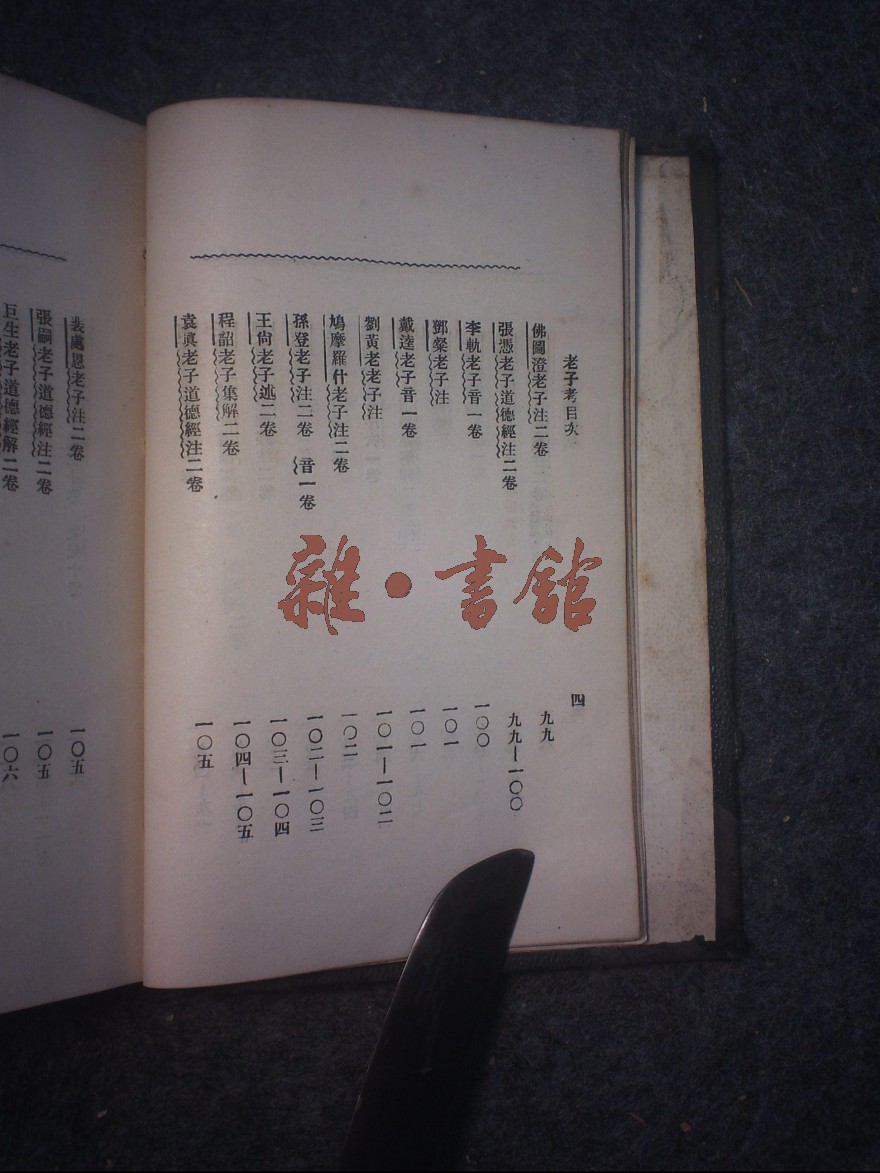 老子考目次
四
佛圖澄老子注二卷
九九
張憑老子道德經注二卷
九九—一〇〇
李軌老子音一卷
一〇〇
鄧粲老子注
一〇一
戴逵老子音一卷
一〇一
劉黃老老子注
一〇一—一〇二
鳩摩羅什老子注二卷
一〇二
孫登老子注二卷 音一卷
一〇二—一〇三
王尚老子述二卷
一〇三—一〇四
程韶老子集解二卷
一〇四—一〇五
袁眞老子道德經注二卷
一〇五
裴處恩老子注二卷
一〇五
張嗣老子道德經注二卷
一〇五
巨生老子道德經解二卷
一〇六
雜·書館